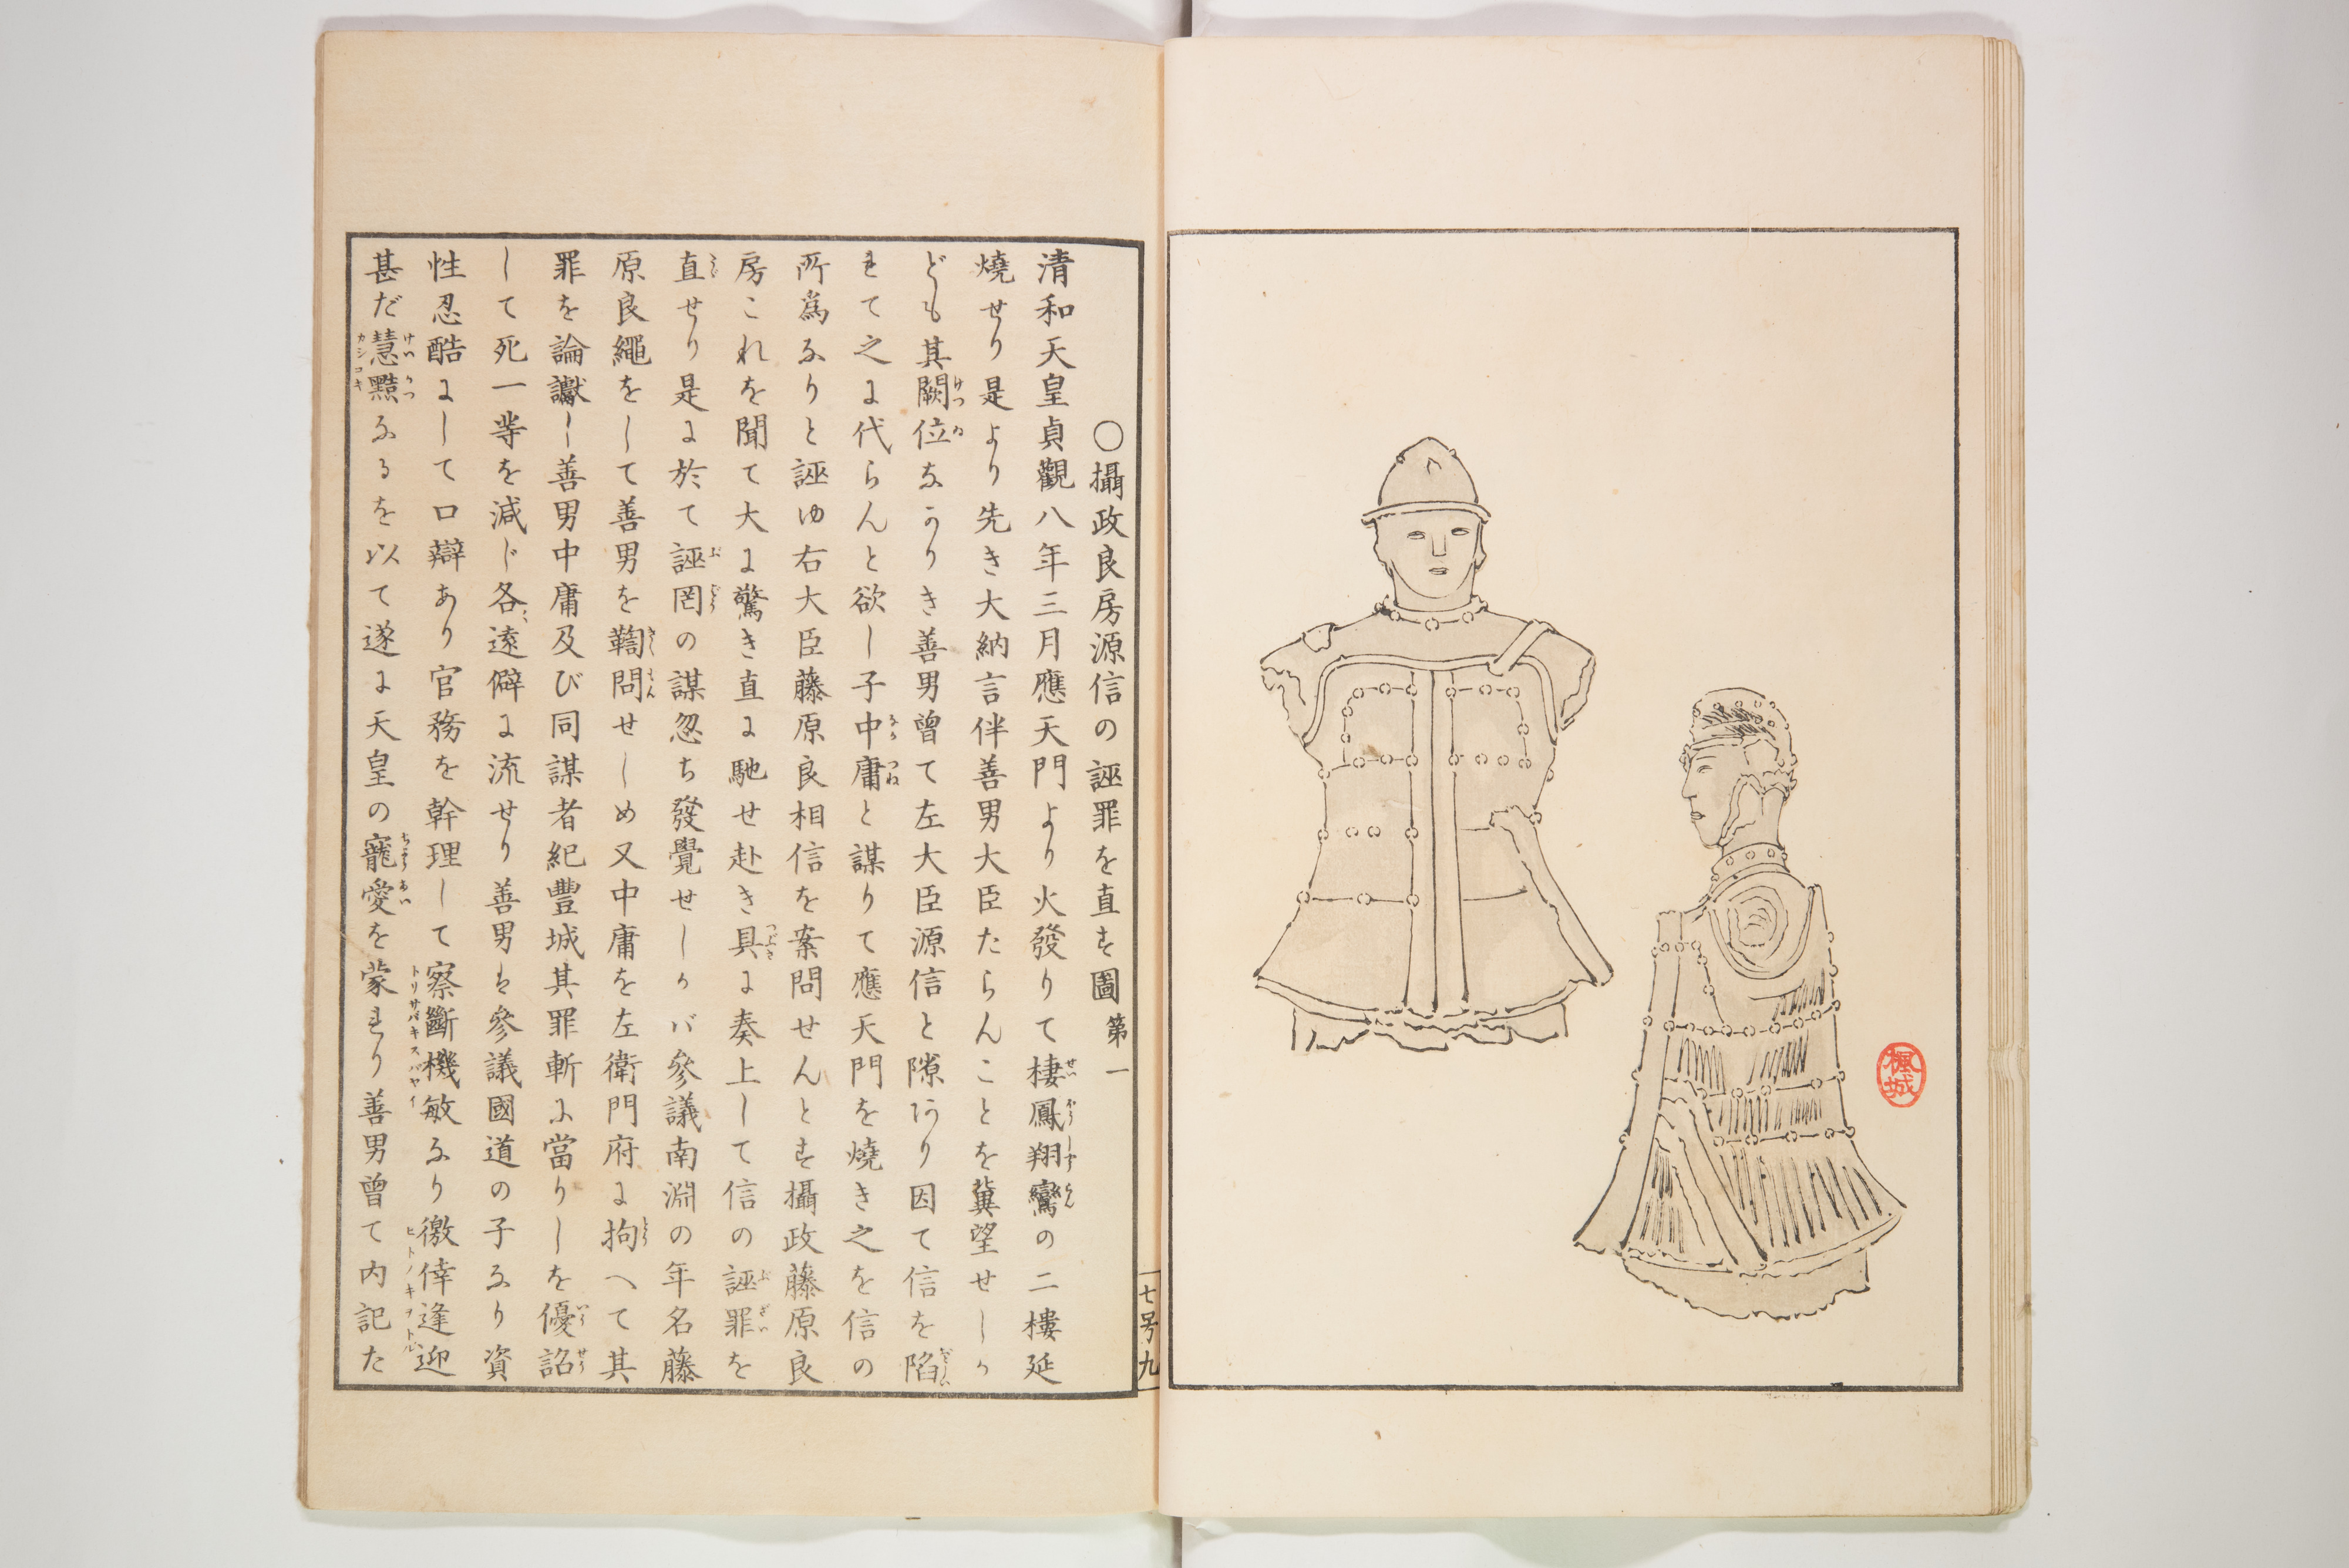 楓城
〇攝政良房源信の誣罪を直す圖 第一
清和天皇貞觀八年三月應天門より火發りて棲鳳翔鸞の二樓延
燒せり是より先き大納言伴善男大臣たらんことを冀望せしか
ども其闕位なかりき善男曾て左大臣源信と隙あり因て信を陷
れて之に代らんと欲し子中庸と謀りて應天門を燒き之を信の
所爲なりと誣ゆ右大臣藤原良相信を案問せんとす攝政藤原良
房これを聞て大に驚き直に馳せ赴き具に奏上して信の誣罪を
直せり是に於て誣罔の謀忽ち發覺せしかバ參議南淵の年名藤
原良繩をして善男を鞫問せしめ又中庸を左衛門府に拘へて其
罪を論讞し善男中庸及び同謀者紀豐城其罪斬に當りしを優詔
して死一等を減じ各遠僻に流せり善男は參議國道の子なり資
性忍酷にして口辯あり官務を幹理して察斷機敏なり徼倖逢迎
甚だ慧黠なるを以て遂に天皇の寵愛を蒙れり善男曾て内記た
七号九